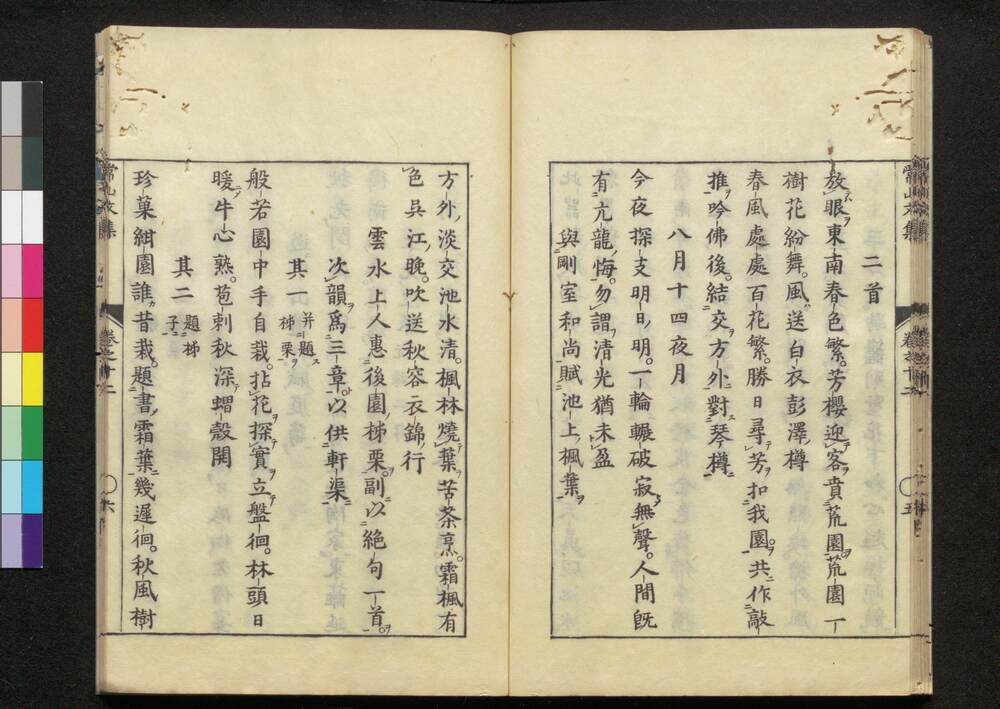 二首
放眼東南春色繁。芳櫻迎客賁荒園。荒園一
樹花紛舞。風送白衣彭澤樽
春風處處百花繁。勝日尋芳扣我園。共作敲
推吟佛後。結交方外對琴樽
八月十四夜月
今夜探支明日明。一輪輾破寂無聲。人間旣
有亢龍悔。勿謂清光猶未盈
與剛室和尚賦池上楓葉
方外淡交池水清。楓林燒葉苦茶烹。霜楓有
色吳江晚。吹送秋容衣錦行
雲水上人惠後園柹栗。副以絶句一首。
次韻爲三章。以供軒渠
其一 并題柹栗
般若園中手自栽。拈花探實立盤徊。林頭日
暖牛心熟。苞刺秋深蝟殼開
其二 題柹子
珍菓紺園誰昔栽。題書霜葉幾遲徊。秋風樹
卷之十二
五
卷之十二
六